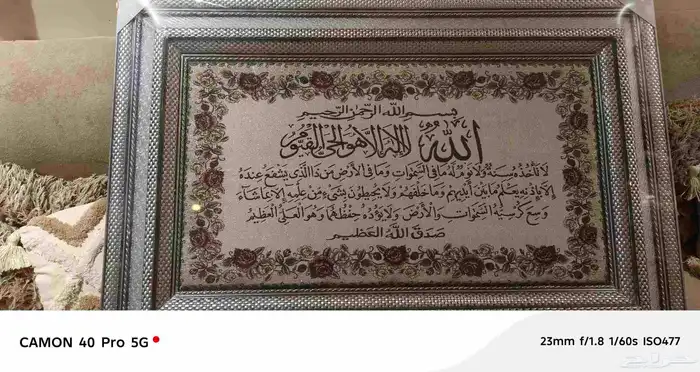 بسم الله الرحمن الرحيم
الله لا إله إلا هو الحي القيوم
لا تأخذه سنة ولا نوم له ما في السموات وما في الأرض من ذا الذي يشفع عنده
إلا بإذنه يعلم ما بين أيديهم وما خلفهم ولا يحيطون بشيء من علمه إلا بما شاء
وسع كرسيه السموات والأرض ولا يؤده حفظهما وهو العلي العظيم
صدق الله العظيم
CAMON 40 Pro 5G
23mm f/1.8 1/60s ISO477
حراج